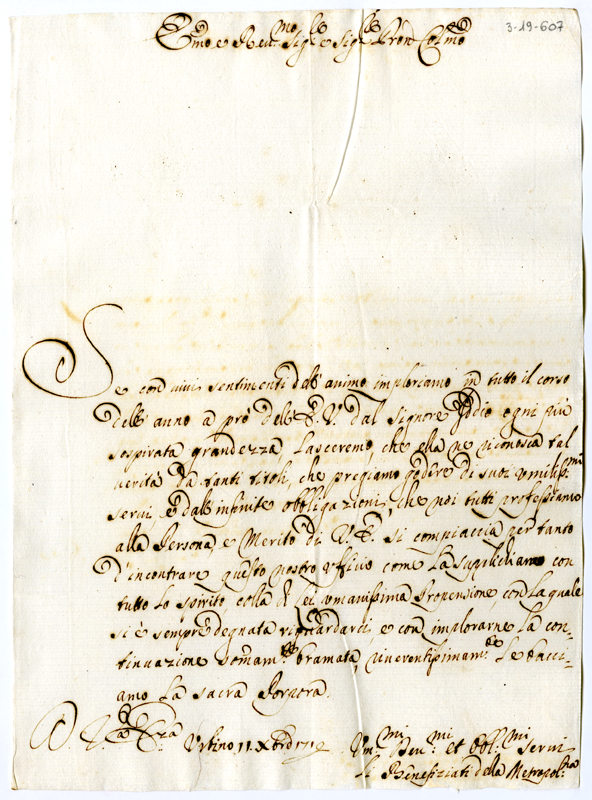 3-19-607
Emo e Reu:mo Sig:re Sig:re Pron Colmo
Se con uiui sentimenti dell'animo imploriamo in tutto il corso
dell'anno a prò dell'E.V. dal Signore Iddio ogni più
sospirata grandezza, Lasceremo, che ella ne riconosca tal
uerità da tanti titoli, che pregiamo godere di suoi umiliss:mi
serui, e dall'infinite obbligazioni, che noi tutti professiamo
alla Persona, e Merito di V.E. si compiaccia per tanto
d'incontrare questo nostro uffizio come La supplichiamo con
tutto lo spirito, colla di Lei umanissima Propensione, con La quale
si è sempre degnata riguardarci, e con implorarne La con-
tinuazione somam:te bramata, riuerentissimam:te Le bacci-
amo La sacra Porpora.
D. V.a E.za Urbino 11. Xbre 1712 Um:mi Deu:mi et obbl:mi serui
Li Benefiziati della Metropol:na